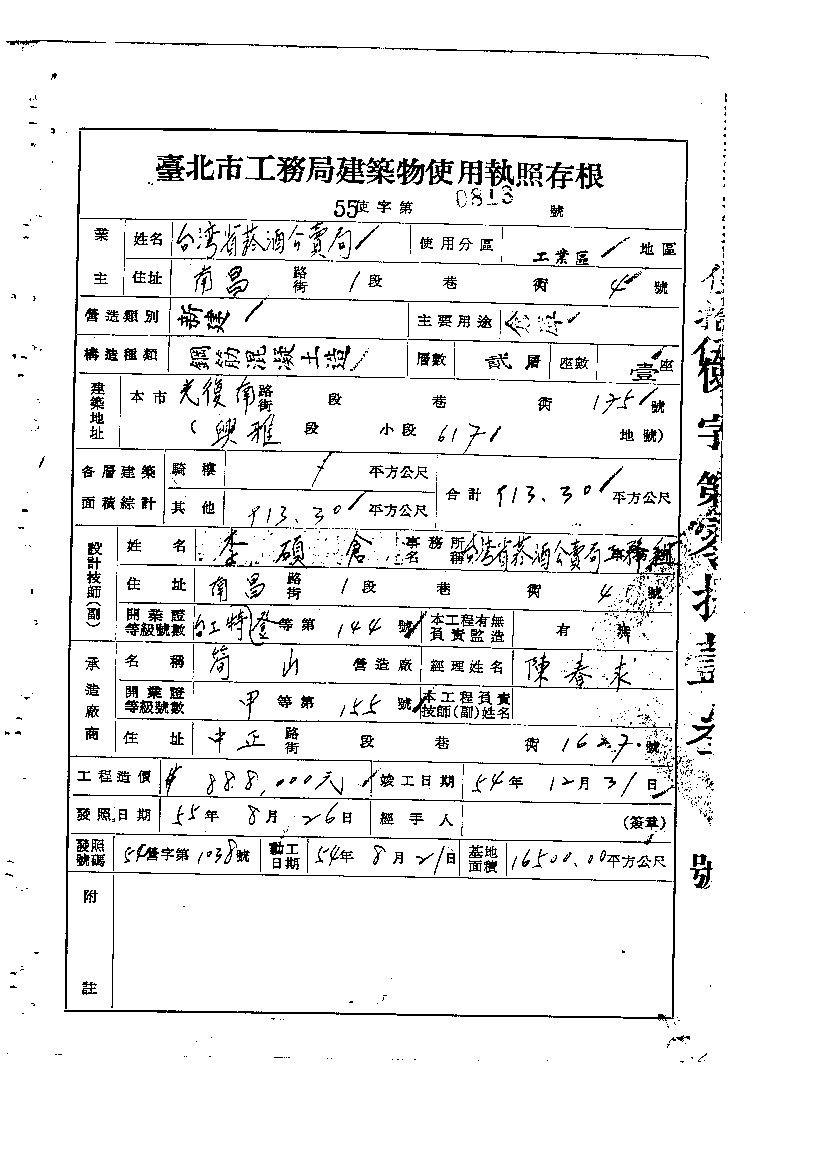 臺北市工務局建築物使用執照存根
55使字第0813號
業主 姓名 台湾省菸酒公賣局 使用分區 工業區 地區
住址 南昌 路街 1段 巷 衖 4號
營造類別 新建 主要用途 倉庫
構造種類 鋼筋混凝土造 層數 貳層 座數 壹座
建築地址 本市 光復南 路街 段 巷 衖 175號
(興雅 段 小段 617 地號)
各層建築面積綜計 騎樓 / 平方公尺 合計 913.30 平方公尺
其他 913.30 平方公尺
設計技師(副) 姓名 李碩倉 事務所名稱 台湾省菸酒公賣局
住址 南昌 路街 1段 巷 衖 4號
開業證等級號數 台工特登等第144號 本工程有無負責監造 有
承造廠商 名稱 山 營造廠 經理姓名 陳春求
開業證等級號數 甲等第155號 本工程負責技師(副)姓名
住址 中正 路街 段 巷 衖 1627號
工程造價 888,000元 竣工日期 54年12月31日
發照日期 55年8月26日 經手人 (簽章)
發照號碼 54營字第1038號 動工日期 54年8月21日 基地面積 16500.00平方公尺
附註
伍拾伍使字第零捌壹叁號